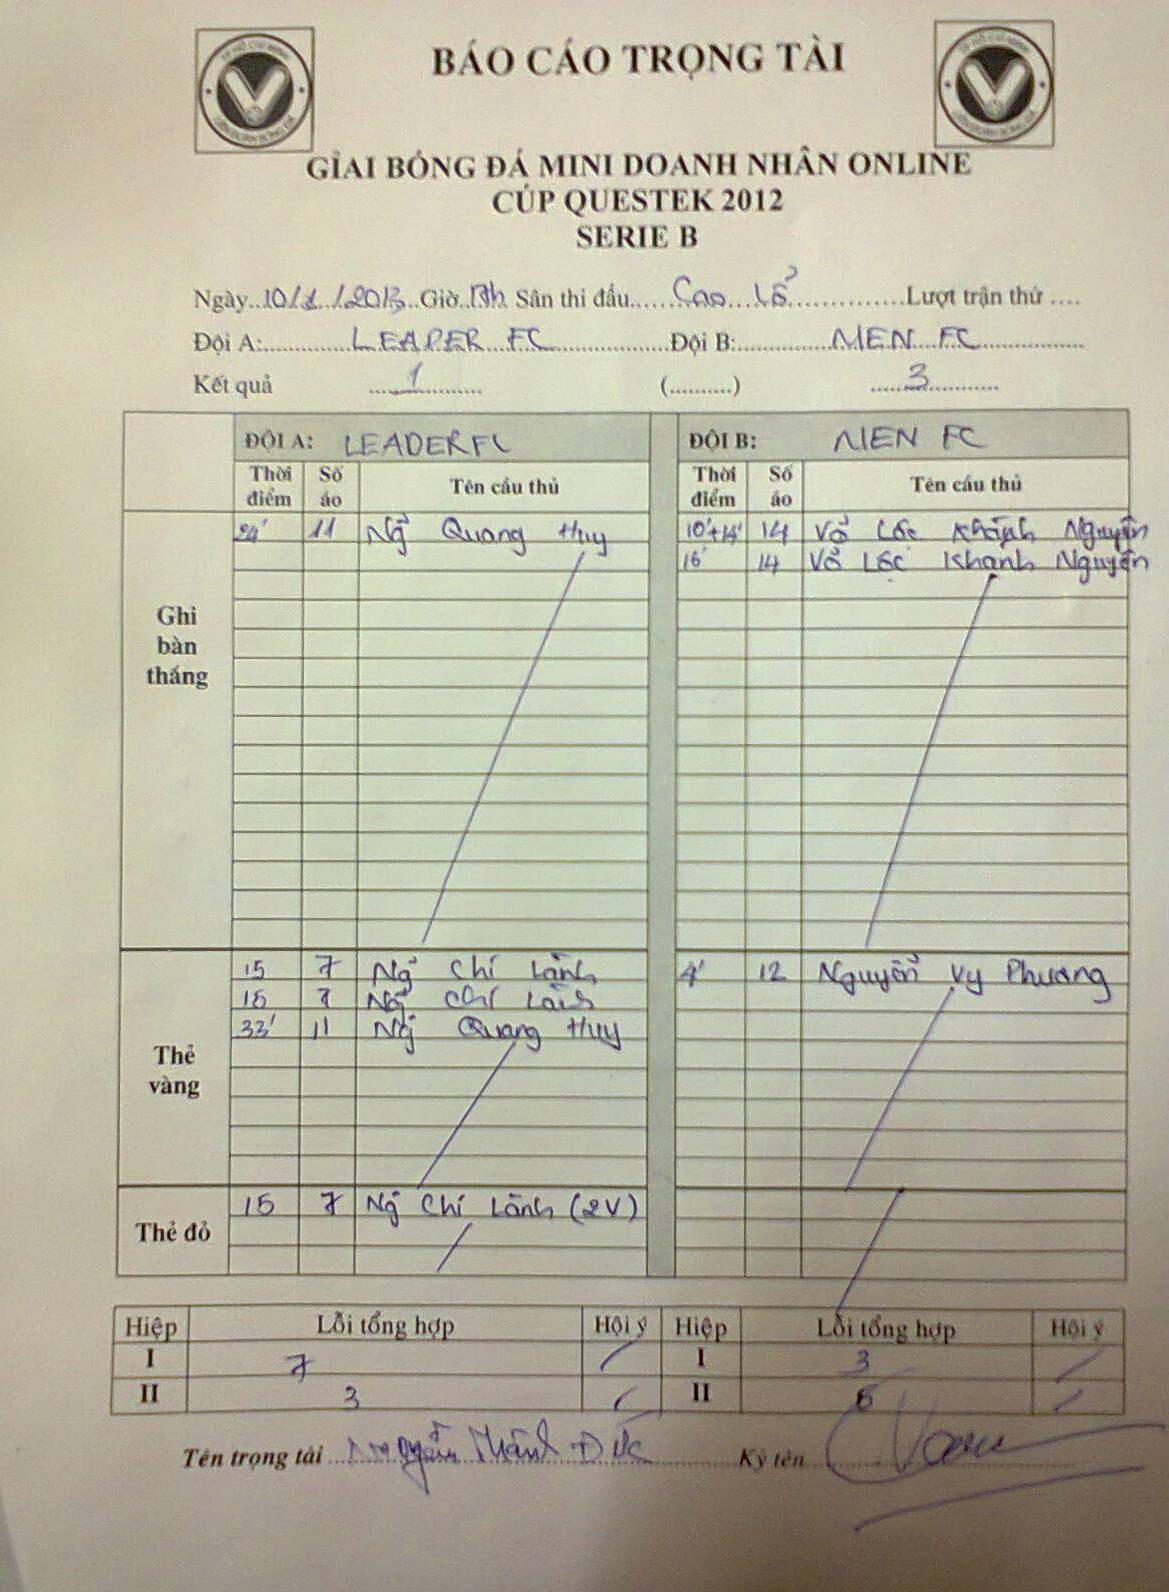 BÁO CÁO TRỌNG TÀI
GIẢI BÓNG ĐÁ MINI DOANH NHÂN ONLINE
CÚP QUESTEK 2012
SERIE B
Ngày...10/1/2013 Giờ 13h Sân thi đấu......Cao Lổ...............Lượt trận thứ ....
Đội A:...............LEADER FC....................Đội B:...............NIEN FC................
Kết quả 1 (..........) 3
ĐỘI A: LEADER FC ĐỘI B: NIEN FC
Thời điểm Số áo Tên cầu thủ Thời điểm Số áo Tên cầu thủ
Ghi bàn thắng
24' 11 Ng Quang Huy 10'+14' 14 Võ Lộc Khánh Nguyên
16' 14 Võ Lộc Khanh Nguyên
Thẻ vàng
15 7 Ng Chí Lành 4' 12 Nguyễn Vy Phương
15 7 Ng Chí Lành
33' 11 Ng Quang Huy
Thẻ đỏ
15 7 Ng Chí Lành (2V)
Hiệp Lỗi tổng hợp Hội ý Hiệp Lỗi tổng hợp Hội ý
I 7 I 3
II 3 II 6
Tên trọng tài Nguyễn Thành Đức Ký tên